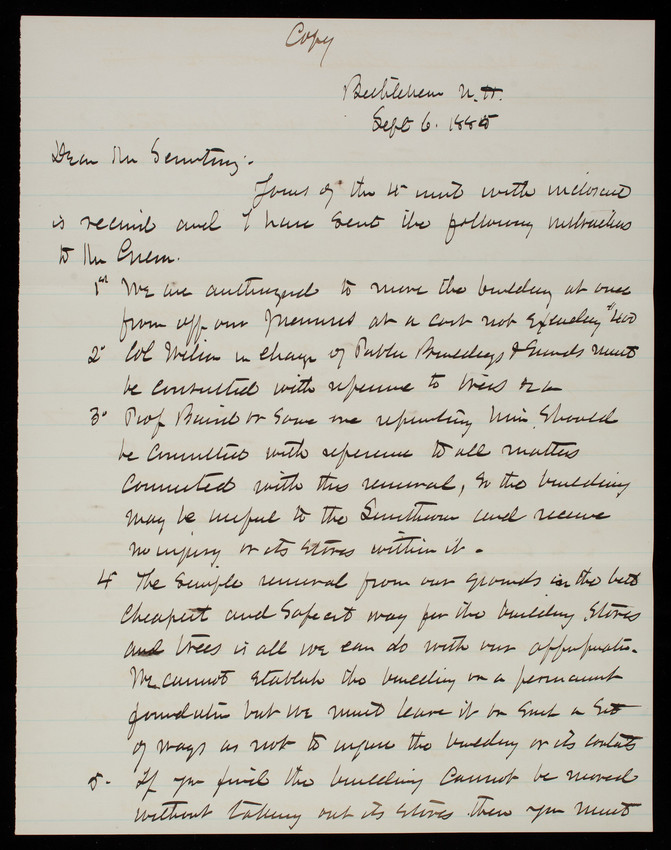 Copy
Bethlehem N.H.
Sept 6. 1885
Dear Mr Secretary.
Yours of the 4 inst with inclosure
is received and I have sent the following instructions
to Mr Green.
1st We are authorized to move the building at once
from off our premises at a cost not exceeding $400
2d Col Wilson in charge of Public Buildings & Grounds must
be consulted with reference to trees &a
3d Prof Baird or some one representing him should
be consulted with reference to all matters
connected with this removal, so the building
may be useful to the Smithson and receive
no injury or its stores within it.
4 The simple removal from our grounds in the best
cheapest and safest way for the building stores
and trees is all we can do with our appropriation.
We cannot establish the building on a permanent
foundation but we must leave it on such a set
of ways as not to injure the building or its contents
5. If you find the building cannot be moved
without taking out its stores then you must